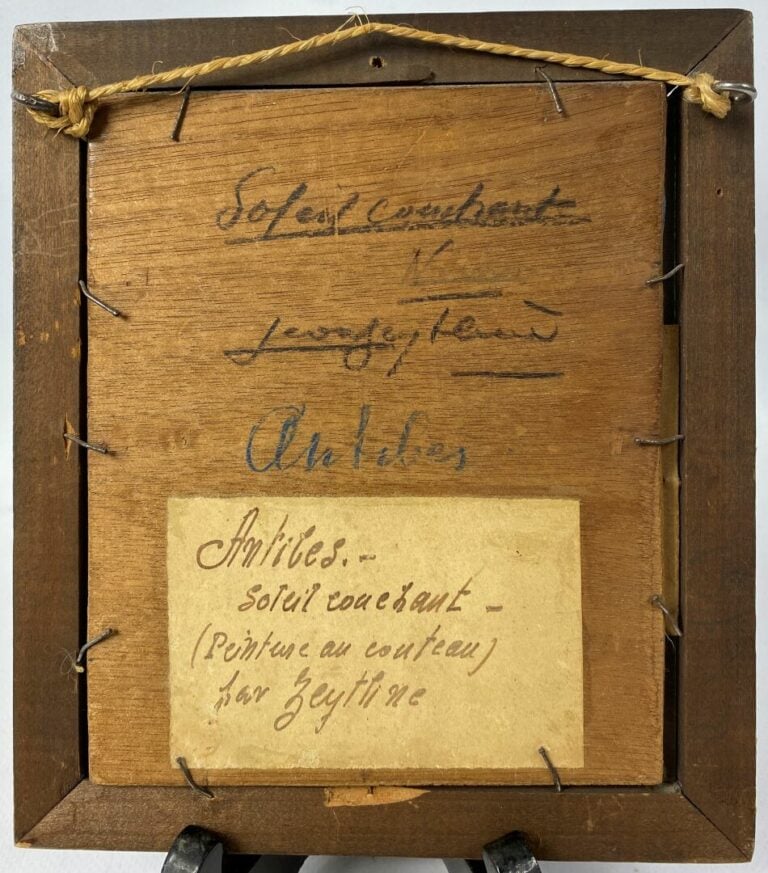 Soleil couchant
Antibes
Antibes. -
Soleil couchant -
(Peinture au couteau)
par Zeytline